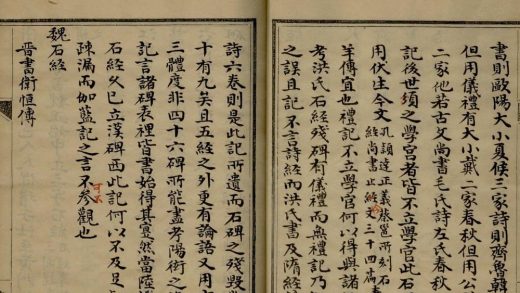 書則歐陽大小夏侯三家詩則齊魯韓
但用儀禮有大小戴二家春秋但用公
二家他若古文尚書毛氏詩左氏春秋
記後世須之學官者皆不立學官此石
用伏生今文孔穎達正義蔡邕所刻石
經尚書止經三十四篇
羊傳宜也禮記不立學官何以得與諸
考洪氏石經殘碑有儀禮而無禮記乃
之誤且記不言詩經而洪氏書及隋經
詩六卷則是此記所遺而石碑之殘毀
十有九矣且五經之外更有論語又用
三體度非四十六碑所能盡考陽衒之
記言諸碑表裡皆書始得其實然當陸
石經久已立漢碑西此記何以不及足
疎漏而伽藍記之言不參觀也
可不
魏石經
晉書衛恒傳